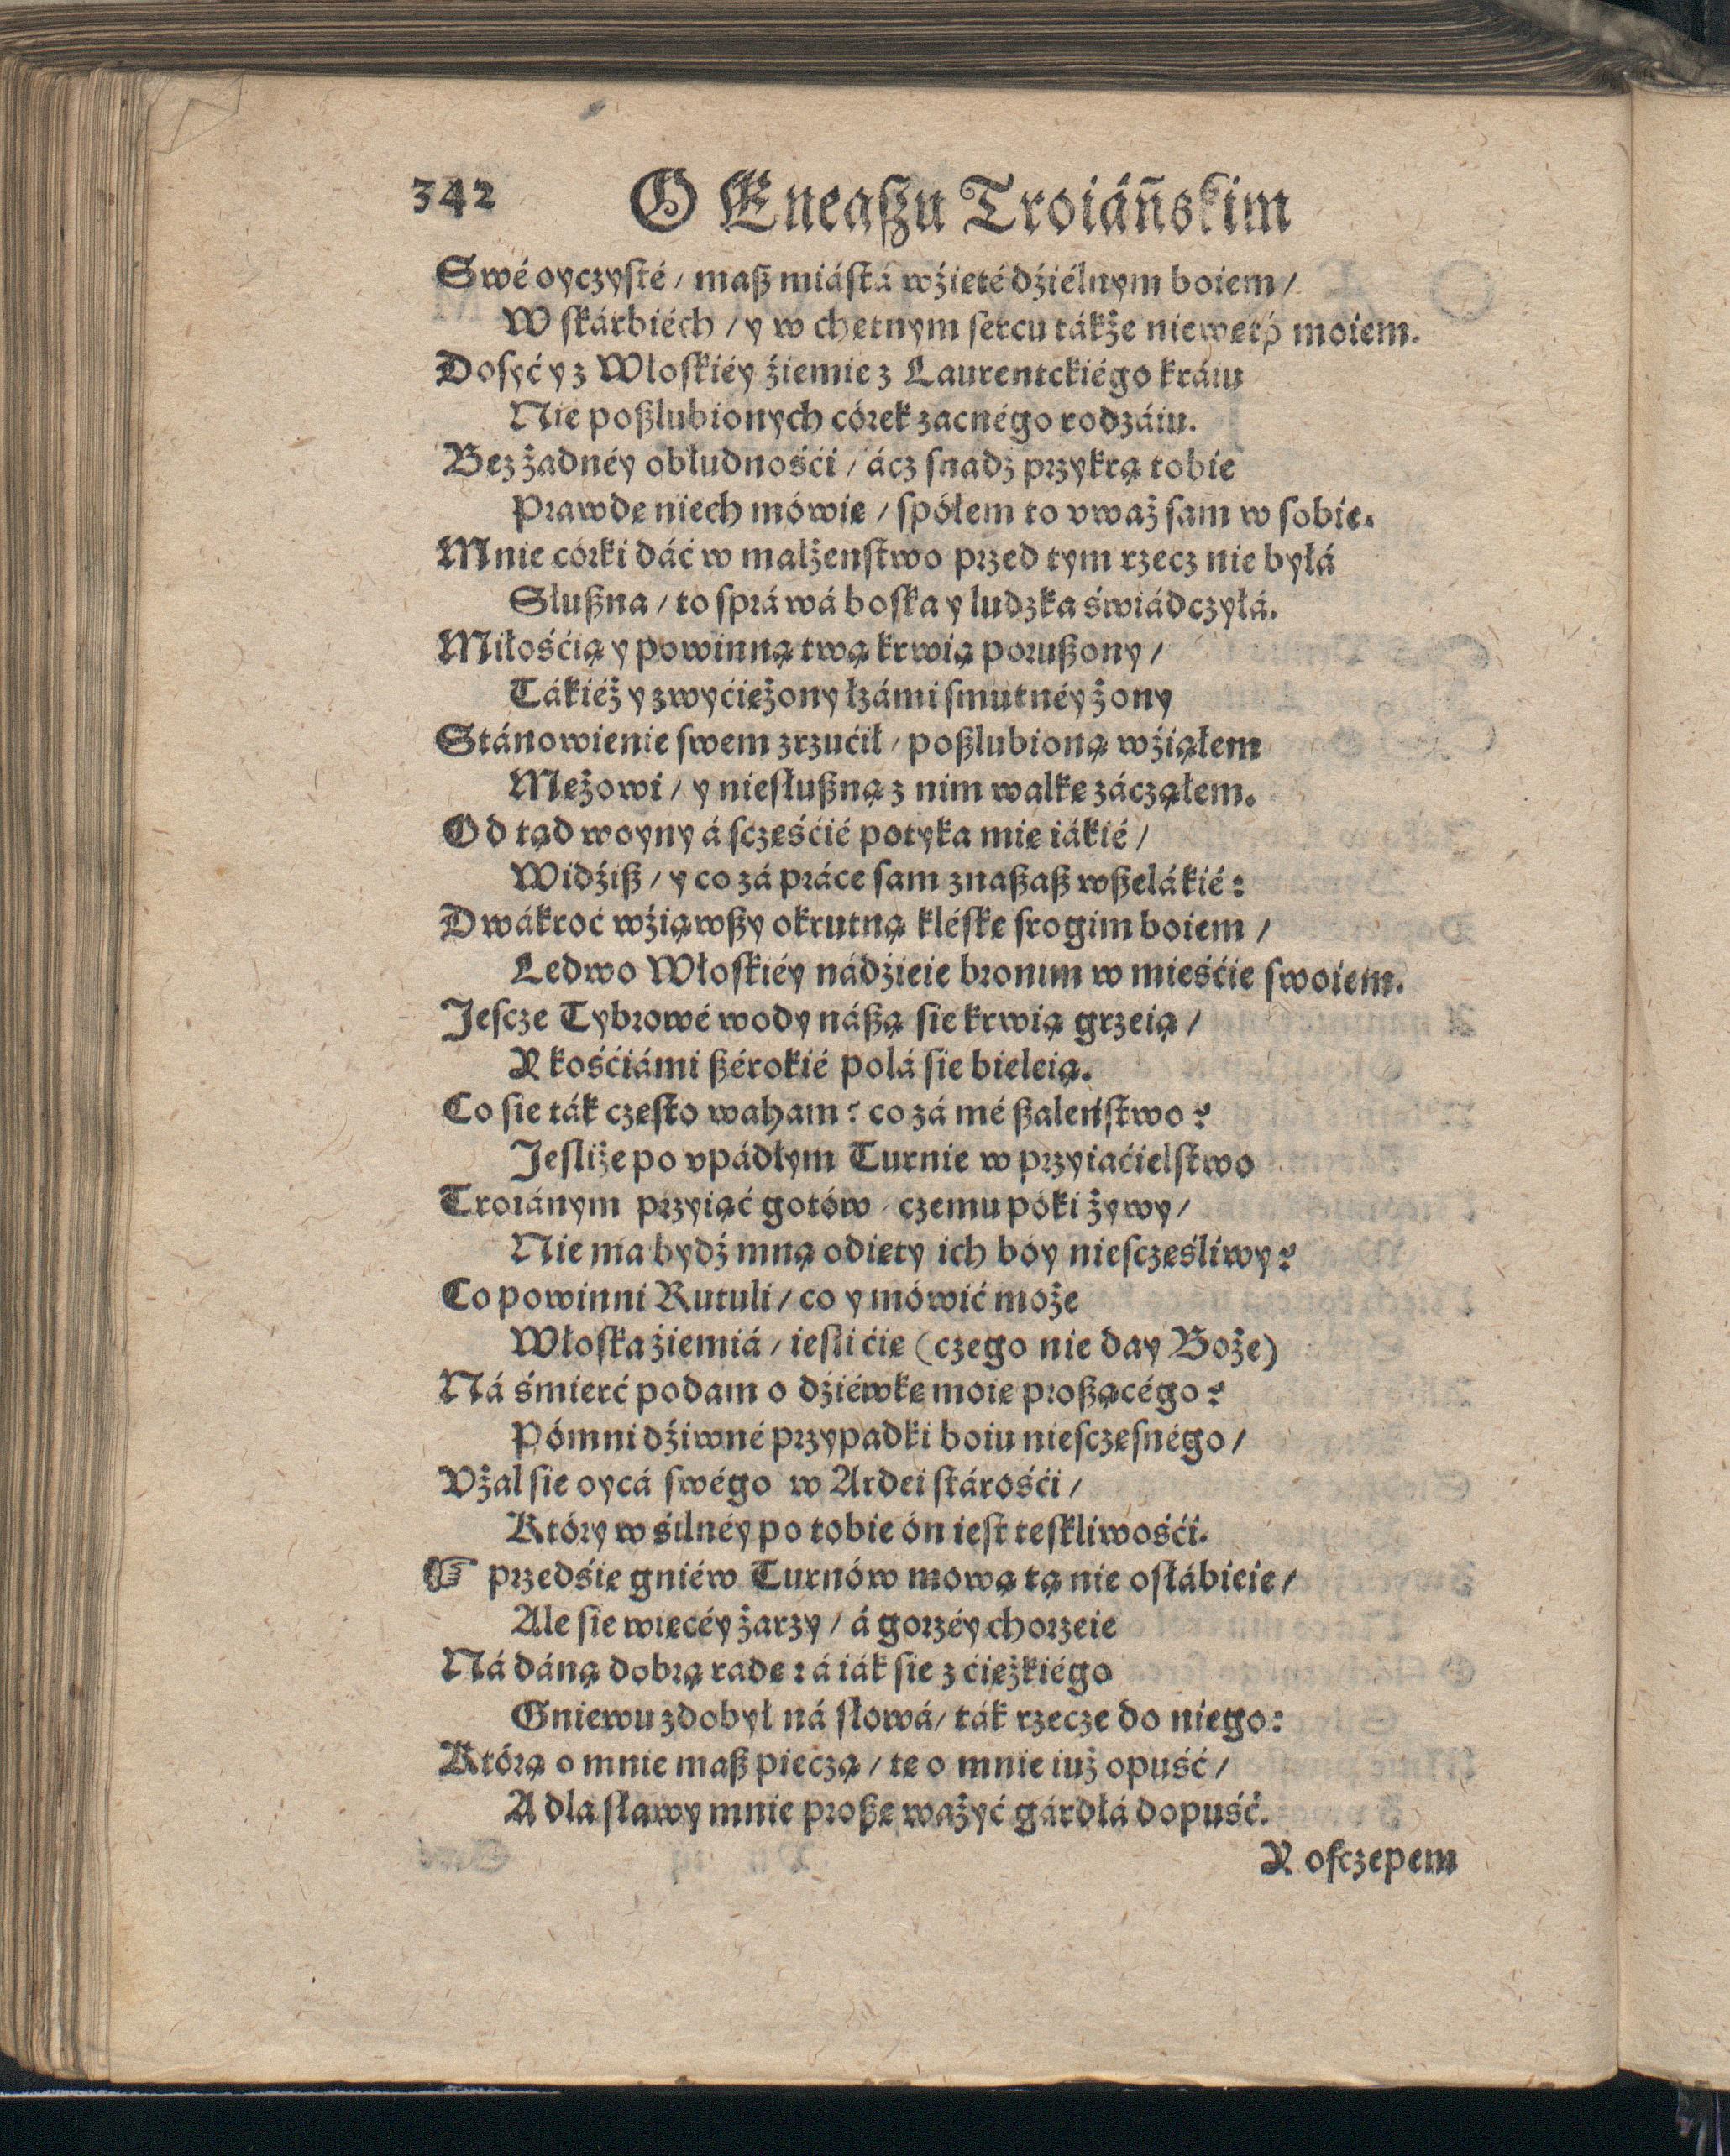 342 O Eneaſzu Troiáñskim
Swé oyczyſté / maſz miáſtá wźięté dźiélnym boiem /
W ſkárbiéch / y w chętnym ſercu tákże niewętṕ moiem.
Doſyć y z Włoſkiéy źiemie z Laurentckiégo kráiu
Nie poſzlubionych córek zacnégo rodzáiu.
Bez żadnéy obłudnośći / ácz ſnadź przykrą tobie
Prawdę niech mówię / ſpółem to vważ ſam w ſobie.
Mnie córki dáć w małżenſtwo przed tym rzecz nie byłá
Słuſzna / to ſpráwá boſka y ludzka świádczyłá.
Miłośćią y powinną twą krwią poruſzony /
Tákiéż y zwyćiężony łzámi ſmutnéy żony
Stánowienie ſwem zrzućił / poſzlubioną wźiąłem
Mężowi / y niesłuſzną z nim walkę zácząłem.
Od tąd woyny á ſczęśćié potyka mię iákié /
Widźiſz / y co zá práce ſam znaſzaſz wſzelákié:
Dwákroć wźiąwſzy okrutną klęſkę ſrogim boiem /
Ledwo Włoſkiéy nádźieie bronim w mieśćie ſwoiem.
Jeſcze Tybrowé wody náſzą ſie krwią grzeią /
Y kośćiámi ſzérokié polá ſie bieleią.
Co ſie ták często waham? co zá mé ſzaleńſtwo?
Jeſliże po vpádłym Turnie w przyiaćielſtwo
Troiánym przyiąć gotów / czemu póki żywy /
Nie ma bydź mną odięty ich bóy nieſczęśliwy?
Co powinni Rutuli / co y mówić może
Włoſka źiemiá / ieſli ćię (czego nie day Boże)
Ná śmierć podam o dźiéwkę moię proſzącégo?
Pómni dźiwné przypadki boiu nieſczęſnégo /
Vżal ſie oycá ſwégo w Ardei ſtárośći /
Który w śilnéy po tobie ón ieſt teſkliwośći.
☞ przedśię gniéw Turnów mową tą nie osłábieie /
Ale ſie więcéy żarzy / á gorzéy chorzeie
Ná dáną dobrą radę: á iák ſie z ćięzkiégo
Gniewu zdobył ná słowá / ták rzecze do niego:
Którą o mnie maſz pieczą / tę o mnie iuż opuść /
A dla sławy mnie proſzę ważyć gárdłá dopuść.
Y oſczepem